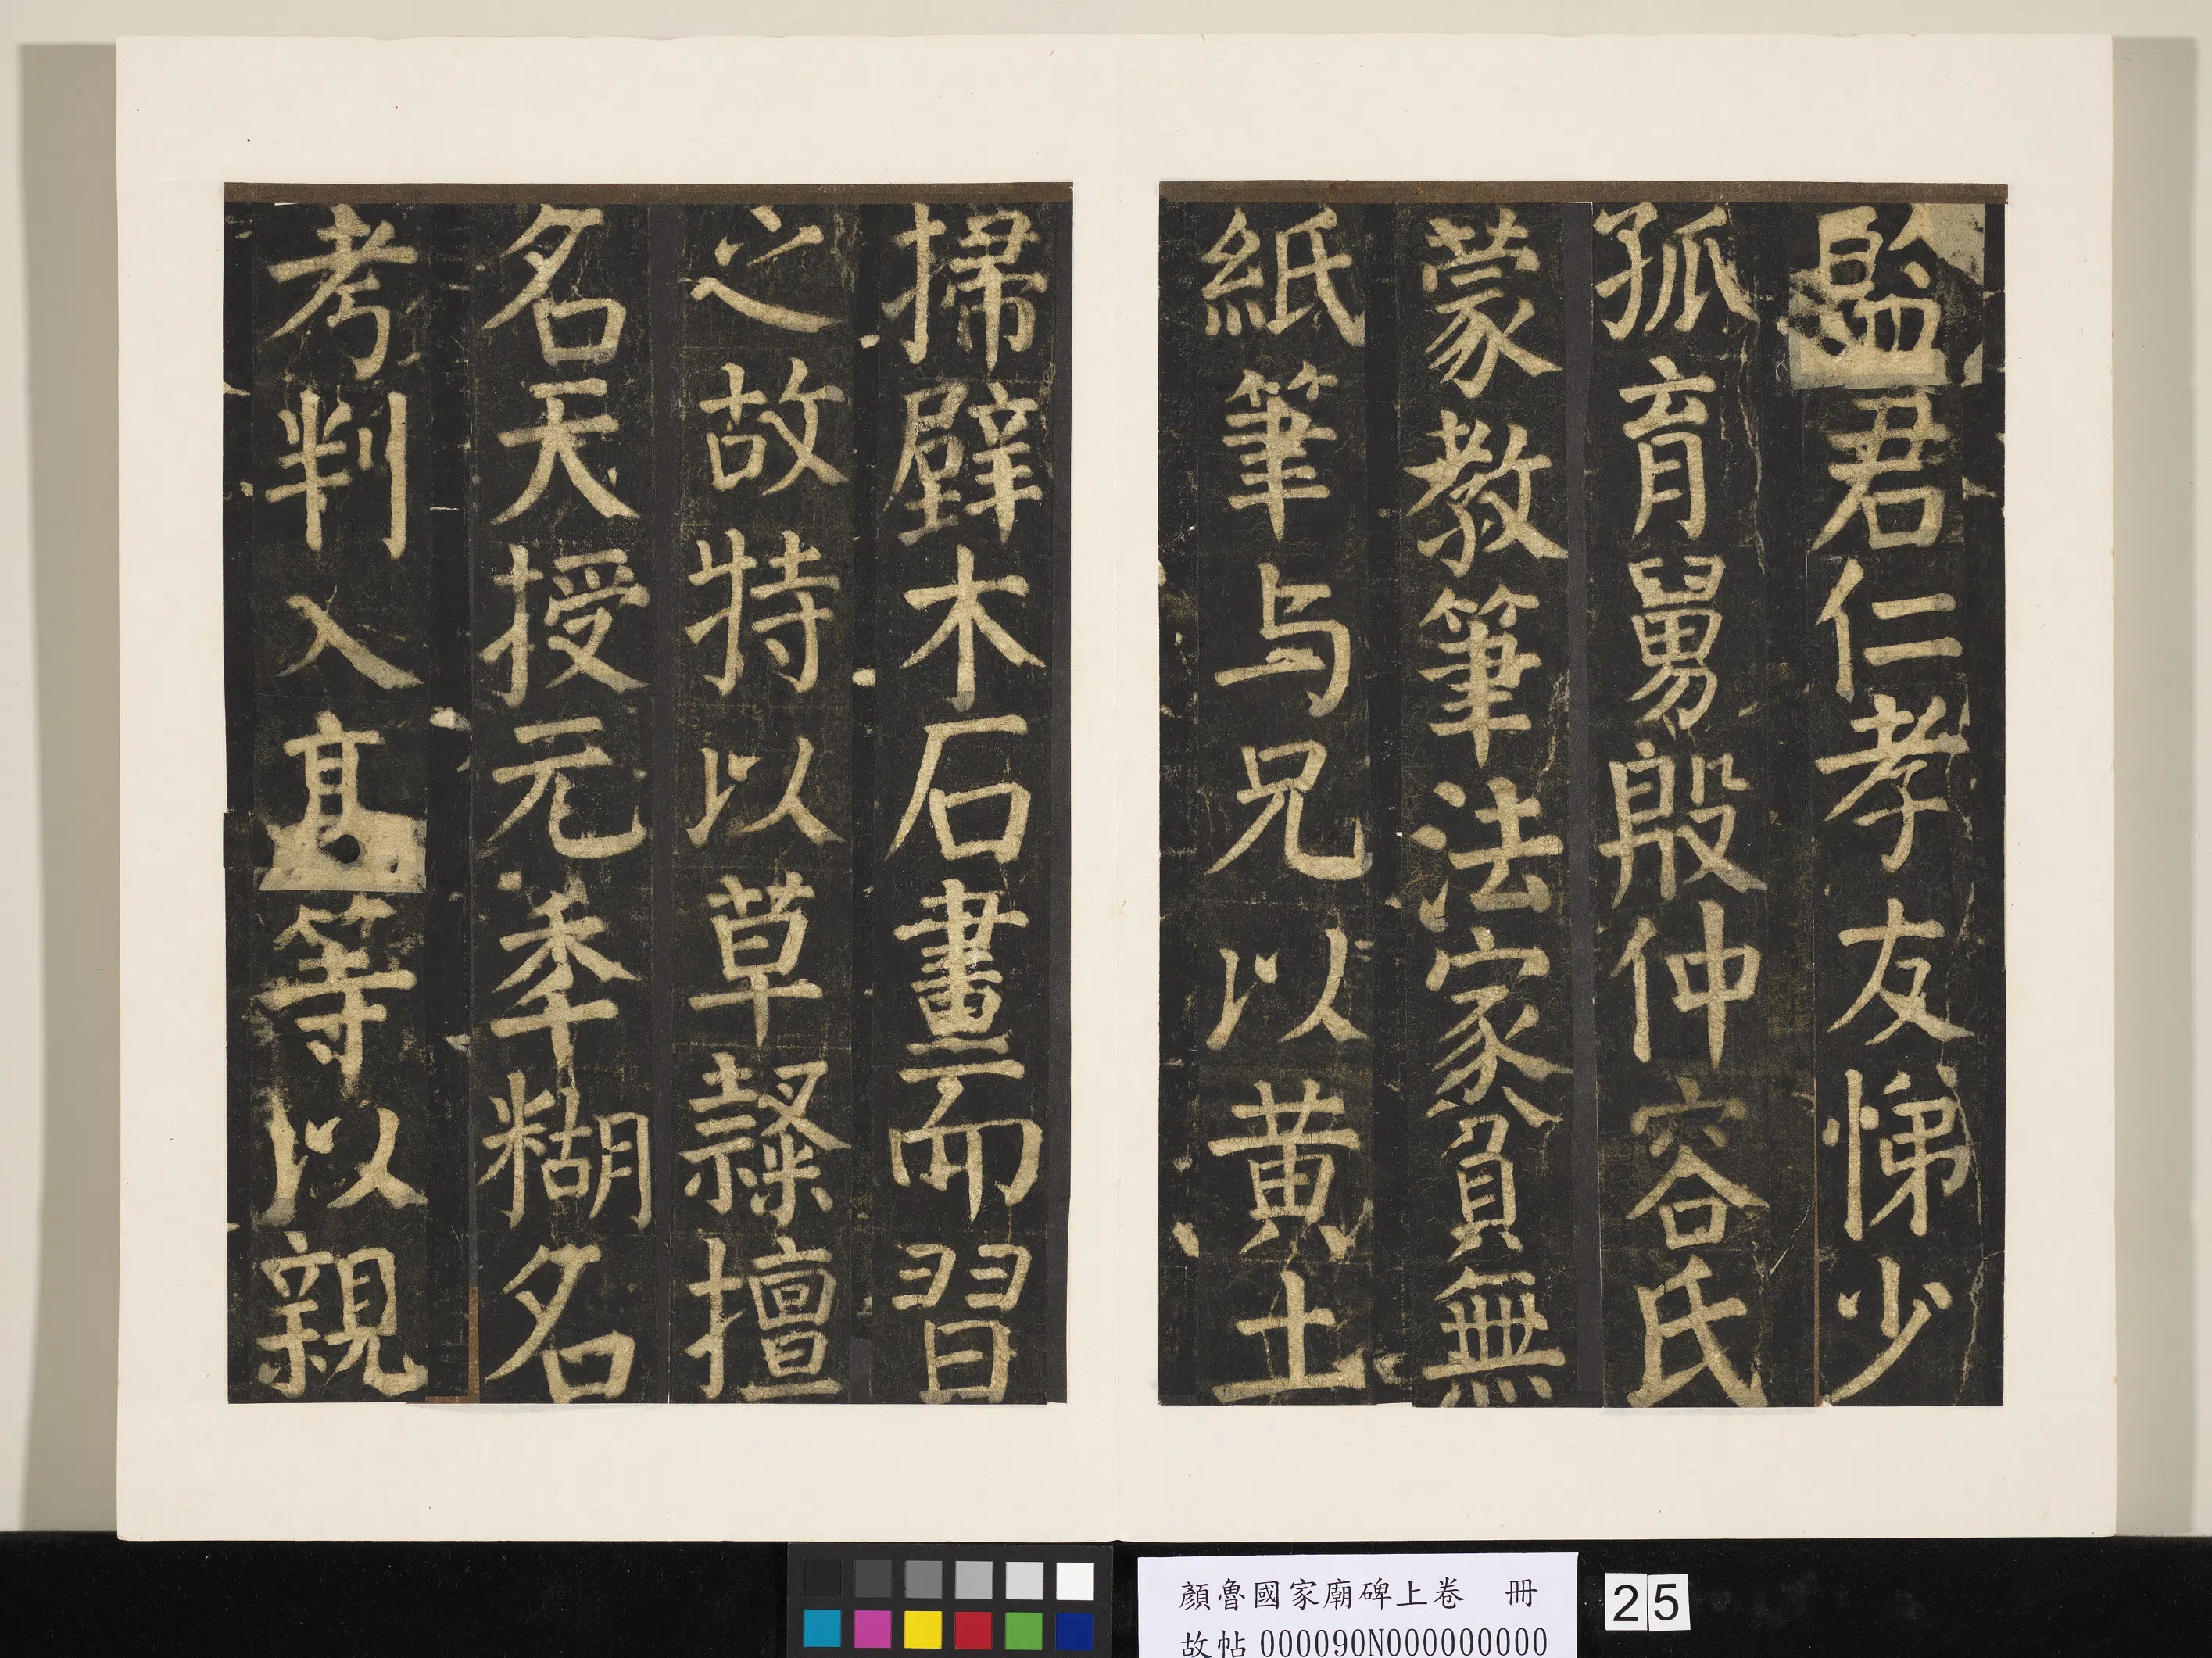 監君仁孝友悌少
孤育舅殷仲容氏
蒙教筆法家貧無
紙筆与兄以黄土
掃壁木石畫而習
之故特以草隸擅
名天授元秊糊名
考判入髙等以親
顏魯國家廟碑上卷 冊
故帖 000090N000000000
25